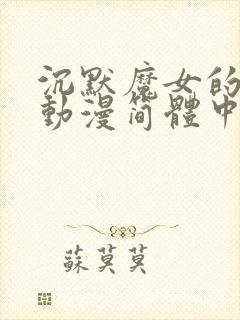 沉默魔女的
動漫简體中
蘇莫莫